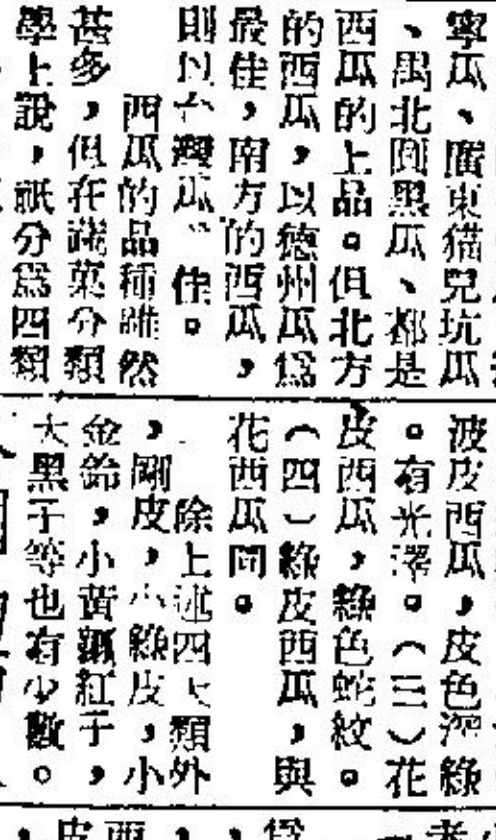 寧瓜、廣東猫兒坑瓜
、禺北圓黑瓜、都是
西瓜的上品。但北方
的西瓜,以德州瓜爲
最佳,南方的西瓜,
則以台灣瓜 佳。
西瓜的品種雖然
甚多,但在蔬菓分類
學上說,祇分爲四類
波皮西瓜,皮色深綠
。有光澤。(三)花
皮西瓜,綠色蛇紋。
(四)綠皮西瓜,與
花西瓜同。
除上述四大類外
,剛皮,小綠皮,小
金鈴,小黃瓤紅子,
大黑子等也有少數。